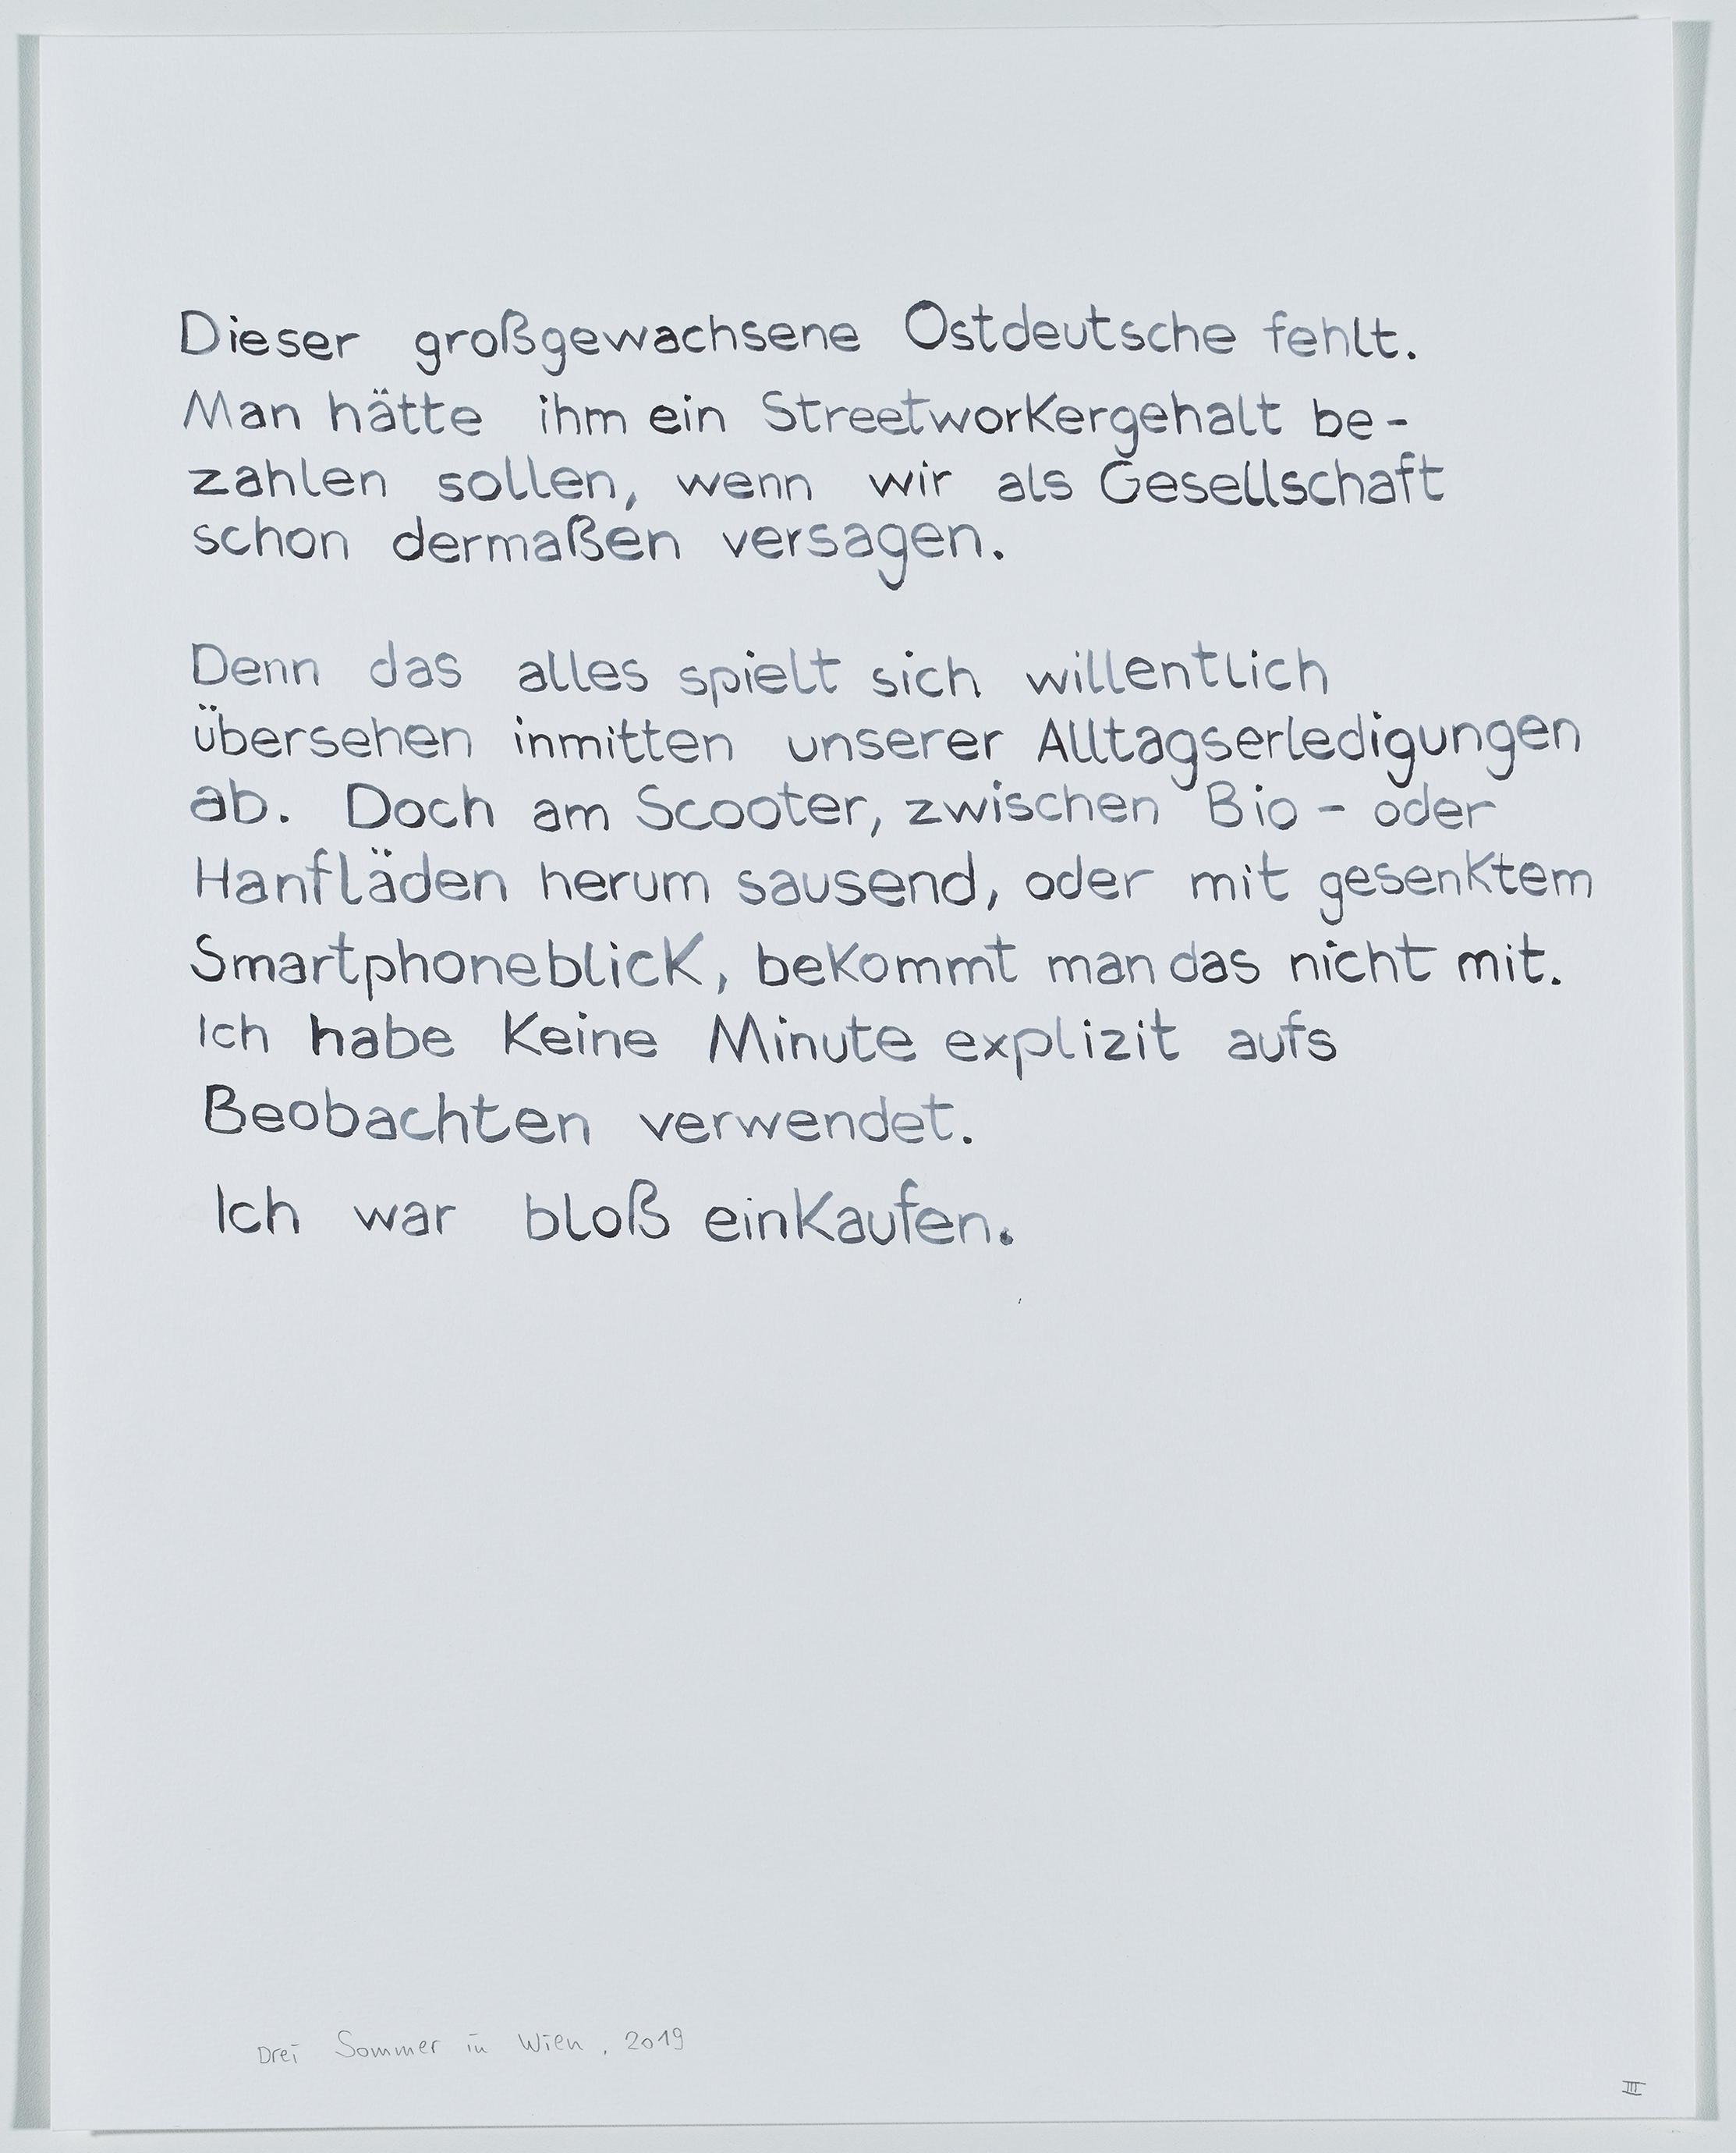 Dieser großgewachsene Ostdeutsche fehlt.
Man hätte ihm ein Streetworkergehalt be-
zahlen sollen, wenn wir als Gesellschaft
schon dermaßen versagen.
Denn das alles spielt sich willentlich
übersehen inmitten unserer Alltagserledigungen
ab. Doch am Scooter, zwischen Bio- oder
Hanfläden herum sausend, oder mit gesenktem
Smartphoneblick, bekommt man das nicht mit.
Ich habe keine Minute explizit aufs
Beobachten verwendet.
Ich war bloß einkaufen.
Drei Sommer in Wien, 2019
III